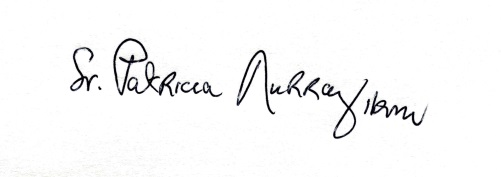 Sr. Patricia Murray, ibvm